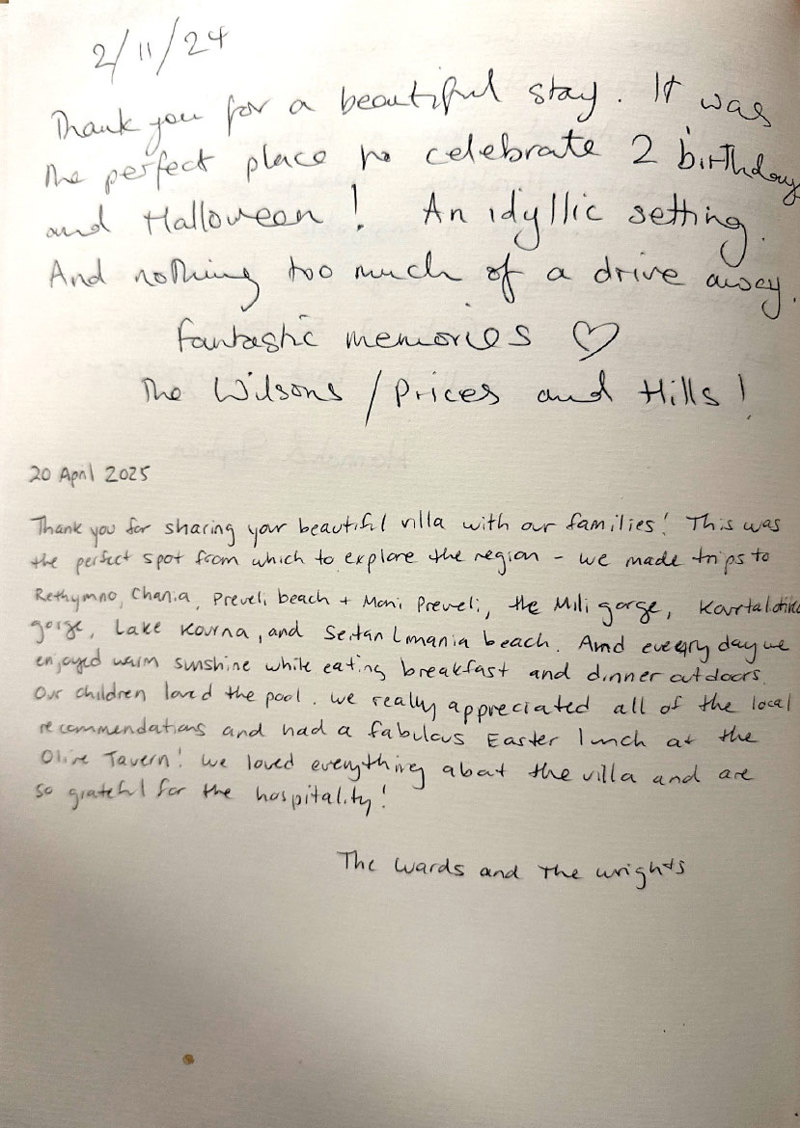 2/11/24
Thank you for a beautiful stay. It was
the perfect place to celebrate 2 birthdays
and Halloween! An idyllic setting.
And nothing too much of a drive away.
Fantastic memories ♡
The Wilsons / Prices and Hills!
20 April 2025
Thank you for sharing your beautiful villa with our families! This was
the perfect spot from which to explore the region - we made trips to
Rethymno, Chania, Preveli beach + Moni Preveli, the Mili gorge, Kourtaliotiko
gorge, Lake Kourna, and Seitan Limania beach. And every day we
enjoyed warm sunshine while eating breakfast and dinner outdoors.
Our children loved the pool. We really appreciated all of the local
recommendations and had a fabulous Easter lunch at the
Olive Tavern! We loved everything about the villa and are
so grateful for the hospitality!
The Wards and the Wrights